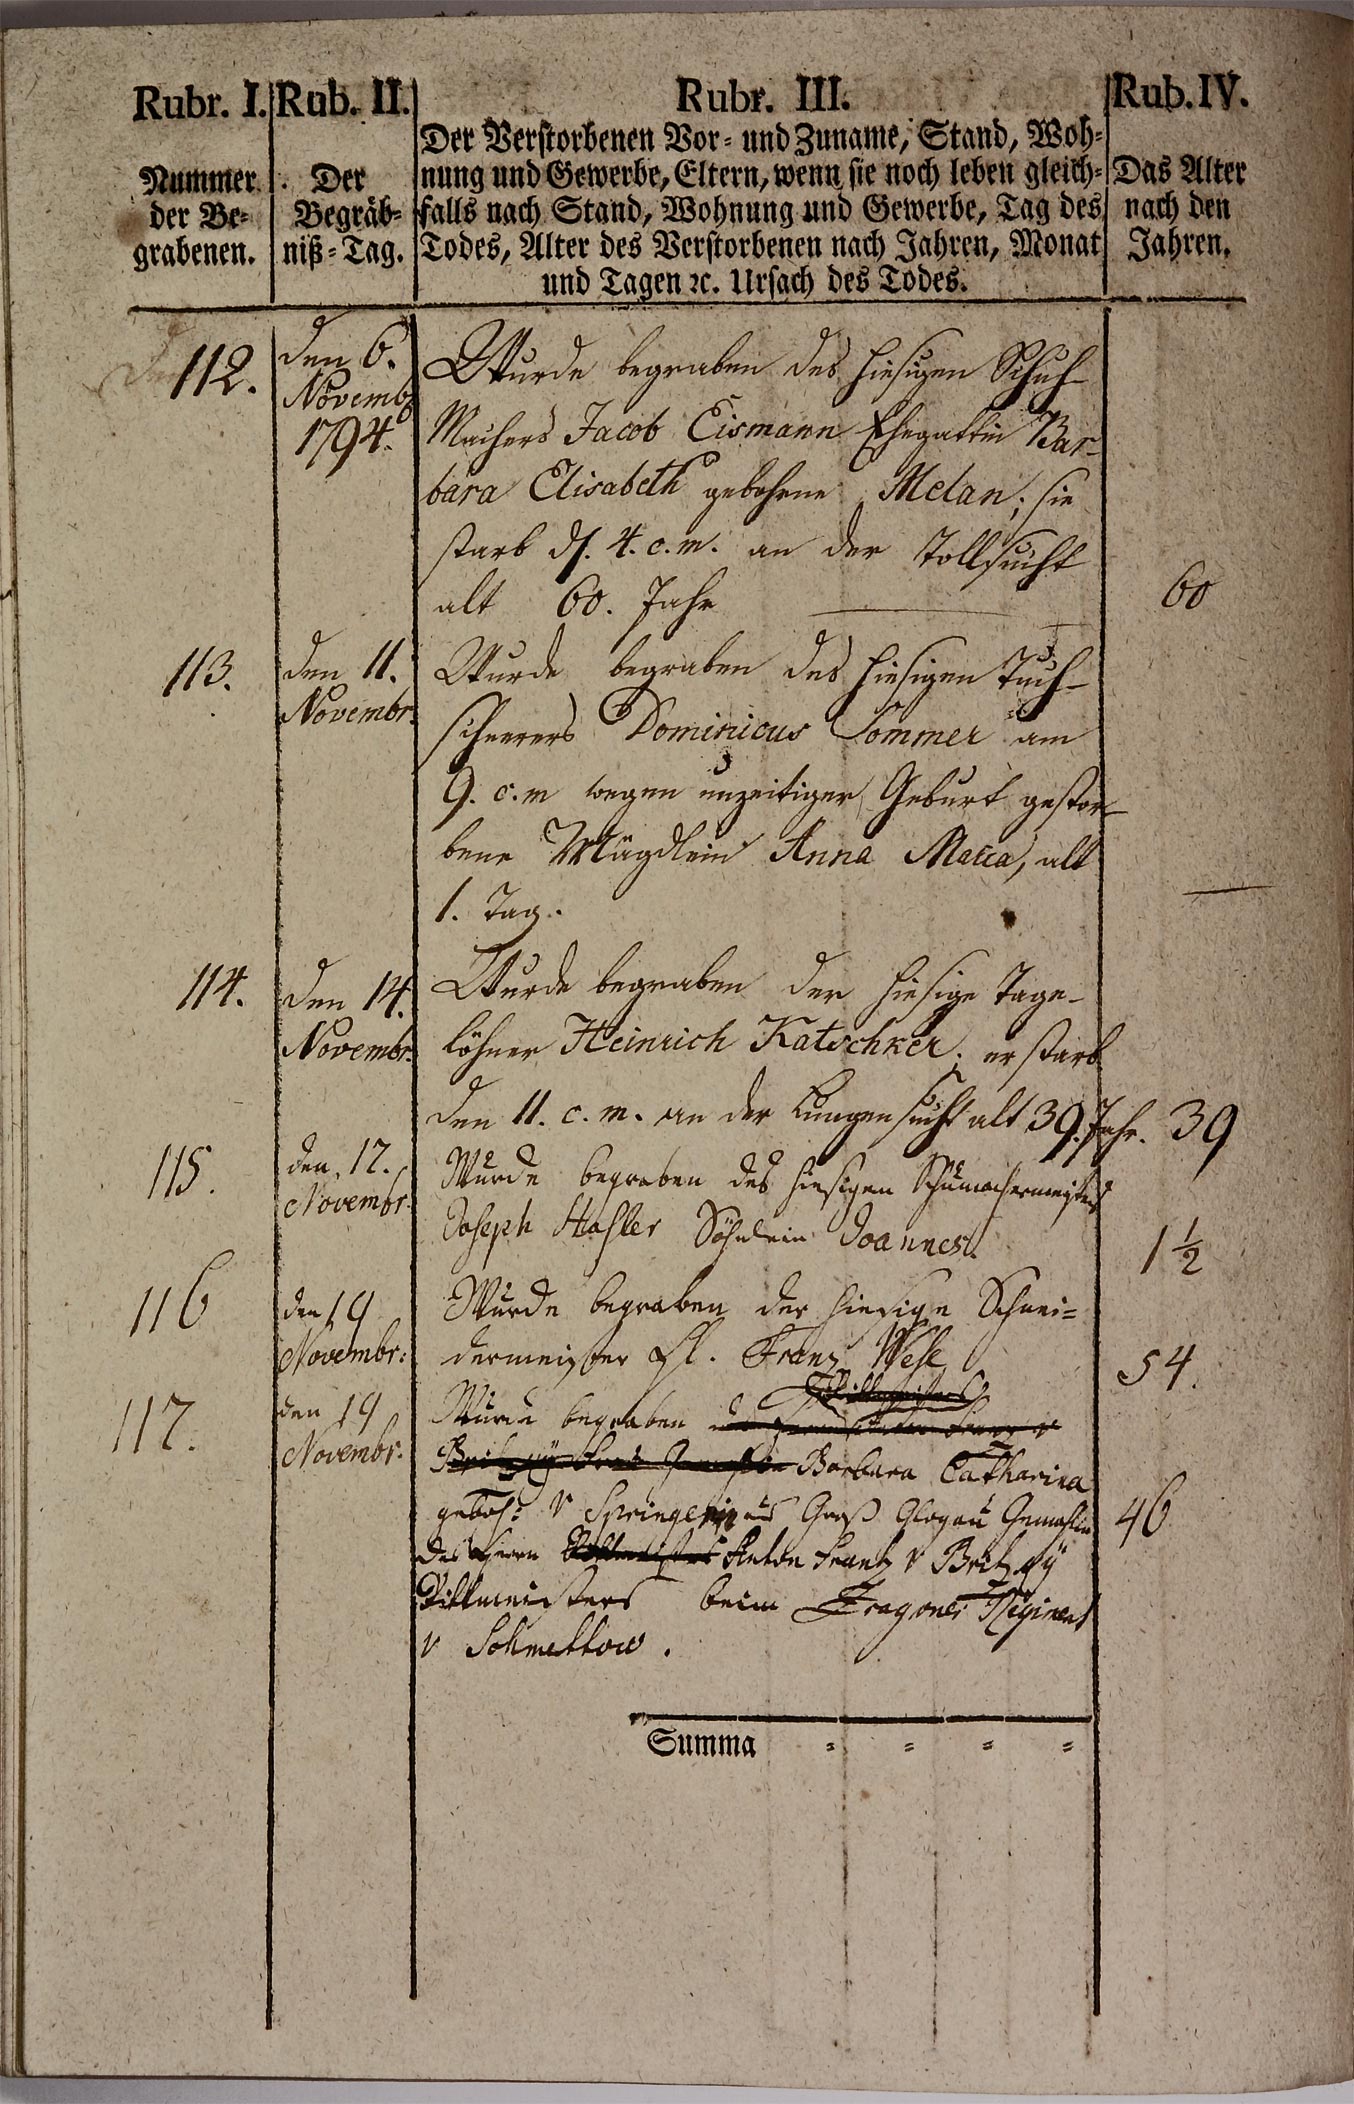 Rubr. I. Rub. II. Rubr. III. Rub. IV.
Nummer der Be=
grabenen.
Der
Begräb=
niß=Tag.
Der Verstorbenen Vor= und Zuname, Stand, Woh=
nung und Gewerbe, Eltern, wenn sie noch leben gleich=
falls nach Stand, Wohnung und Gewerbe, Tag des
Todes, Alter des Verstorbenen nach Jahren, Monat
und Tagen ꝛc. Ursach des Todes.
Das Alter
nach den
Jahren.
112.
den 6.
Novemb
1794.
Wurde begraben des hiesigen Schuh-
Machers Jacob Eismann Ehegattin Bar-
bara Elisabeth gebohrne Melan; sie
starb d. 4. c. m. an der Tollsucht
alt 60. Jahr
60
113.
den 11.
Novembr.
Wurde begraben des hiesigen Tuch-
scheerers Dominicus Sommer am
9. c. m wegen unzeitiger Geburt gestor-
bene Mägdlein Anna Maria, alt
1. Tag.
114.
den 14.
Novembr.
Wurde begraben der hiesige Tage-
löhner Heinrich Katschker; er starb
den 11. c. m. an der Lungensucht alt 39. Jahr. 39
115.
den 17.
Novembr.
Wurde begraben des hiesigen Schumachermeisters
Joseph Hahler Söhnlein Joannes.
1 ½
116
den 19
Novembr:
Wurde begraben der hiesige Schnei=
dermeister Franz Wese
54.
117.
den 19
Novembr.
Wurde begraben
Barbara Catharina
geboh: v Springerin aus Groß Glogau Gemahlin
des Herrn Anton Frantz v Britzgÿ
Rittmeisters beim Dragoner Regiment
v Schmettow.
46
Summa = = = =